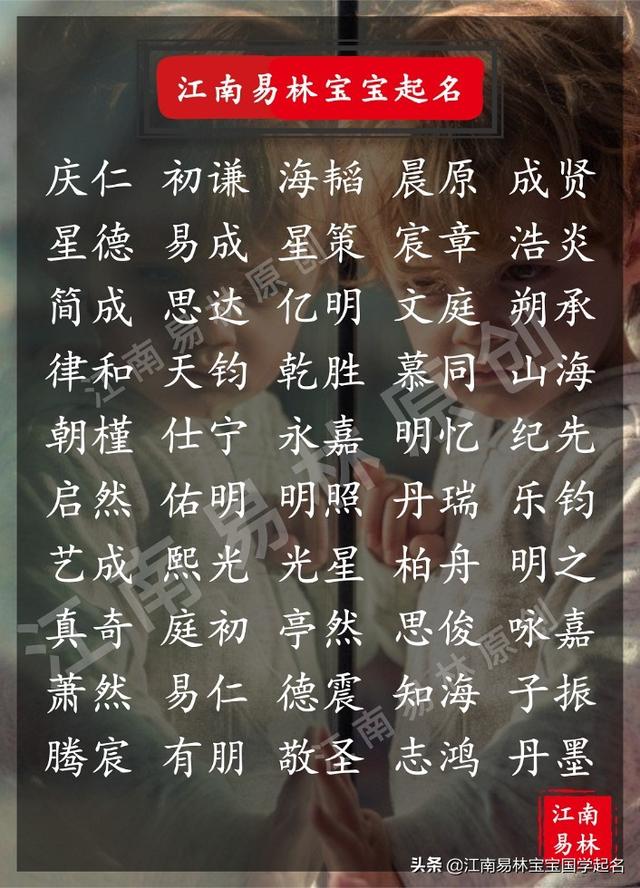 江南易林宝宝起名
庆仁 初谦 海韬 晨原 成贤
星德 易成 星策 宸章 浩炎
简成 思达 亿明 文庭 朔承
律和 天钧 乾胜 慕同 山海
朝槿 仕宁 永嘉 明忆 纪先
启然 佑明 明照 丹瑞 乐钧
艺成 熙光 光星 柏舟 明之
真奇 庭初 亭然 思俊 咏嘉
萧然 易仁 德震 知海 子振
腾宸 有朋 敬圣 志鸿 丹墨
江南易林原创
江南易林原创
江南易林原创
江南
易林
头条 @江南易林宝宝国学起名